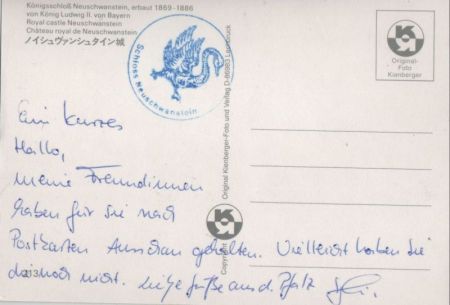 Königsschloß Neuschwanstein, erbaut 1869-1886
von König Ludwig II. von Bayern
Royal castle Neuschwanstein
Château royal de Neuschwanstein
ノイシュヴァンシュタイン城
Schloss Neuschwanstein
Original-
Foto
Kienberger
Copyright Original Kienberger-Foto und Verlag D-86983 Lechbruck
Ein kurzes
Hallo,
meine Freundinnen
haben für Sie nach
Postkarten Ausschau gehalten. Vielleicht haben Sie
die noch nicht. Liebe Grüße aus d. Pfalz
213